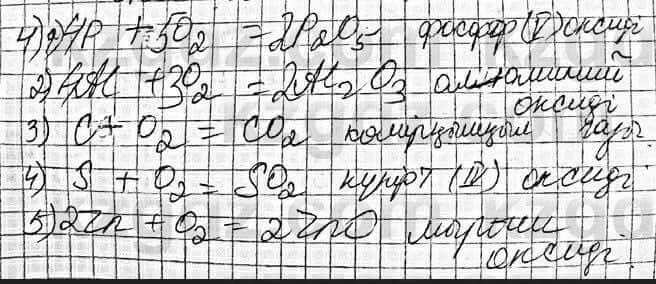 4) 1) 4P + 5O₂ = 2P₂O₅ фосфор (V) оксиді
2) 4Al + 3O₂ = 2Al₂O₃ алюминий
оксиді
3) C + O₂ = CO₂ көмірқышқыл газы
4) S + O₂ = SO₂ күкірт (IV) оксиді
5) 2Zn + O₂ = 2ZnO мырыш
оксиді